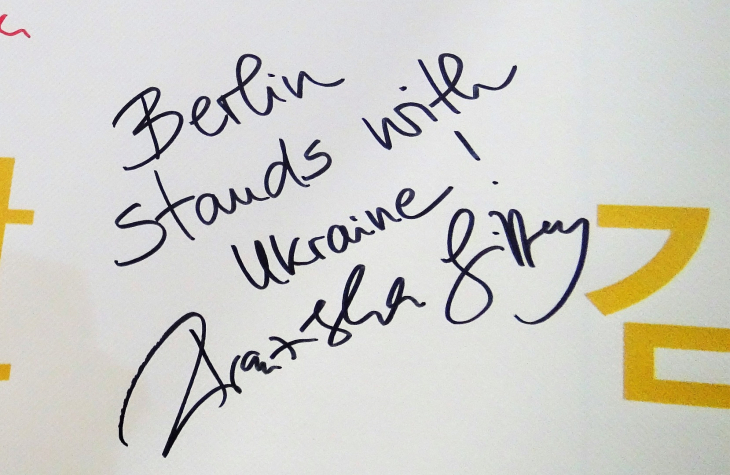 Berlin
stands with
Ukraine!
Franziska Giffey
김